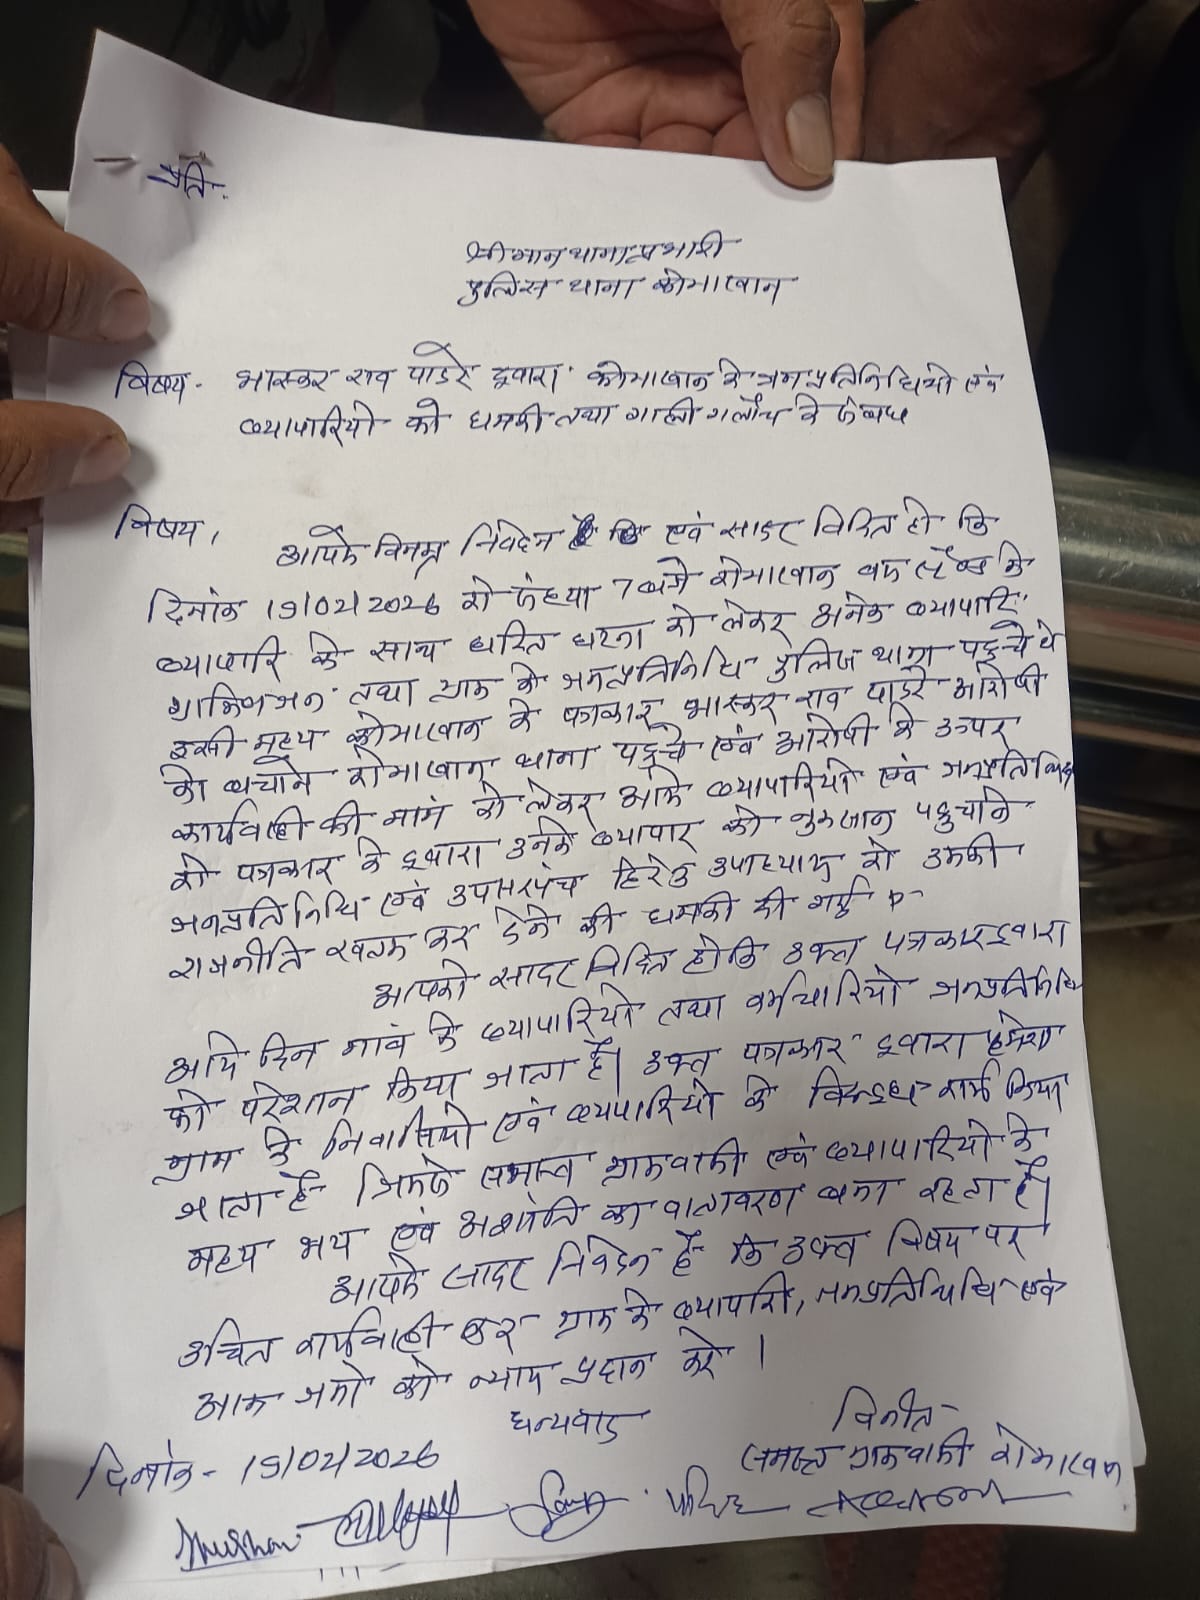 प्रति.
श्रीमान थाना प्रभारी
पुलिस थाना कोमाखान
विषय - भास्कर राव पाडरे द्वारा कोमाखान के जनप्रतिनिधियो एवं
व्यापारियो को धमकी तथा गाली गलौच के संबंध
विषय, आपसे विनम्र निवेदन है कि एवं सादर विदित हो कि
दिनांक 19/02/2026 को संध्या 7 बजे कोमाखान बस स्टैण्ड के
व्यापारि के साथ घटित घटना को लेकर अनेक व्यापारि
ग्रामिणजन तथा ग्राम के जनप्रतिनिधि पुलिस थाना पहुचे थे
इसी मध्य कोमाखान के पत्रकार भास्कर राव पाडरे आरोपी
को बचाने कोमाखान थाना पहुचे एवं आरोपी के उपर
कार्यवाही की मांग को लेकर आये व्यापारियो एवं जनप्रतिनिधि
को पत्रकार के द्वारा उनके व्यापार को नुकसान पहुचाने
जनप्रतिनिधि एवं उपसरपंच हितेश उपाध्याय को उनकी
राजनीति खतम कर देने की धमकी दी गई
आपको सादर विदित हो कि उक्त पत्रकार द्वारा
आये दिन गावं के व्यापारियो तथा कर्मचारियो जनप्रतिनिधि
को परेशान किया जाता है। उक्त पत्रकार द्वारा हमेशा
ग्राम के निवासियो एवं व्यापारियो के विरूद्ध कार्य किया
जाता है जिससे समस्त ग्रामवासी एवं व्यापारियो के
मध्य भय एवं अशांति का वातावरण बना रहता है।
आपसे सादर निवेदन है कि उक्त विषय पर
उचित कार्यवाही कर ग्राम के व्यापारी, जनप्रतिनिधि एवं
आम जनो को न्याय प्रदान करे।
धन्यवाद
विनीत
दिनांक - 19/02/2026
समस्त ग्रामवासी कोमाखान